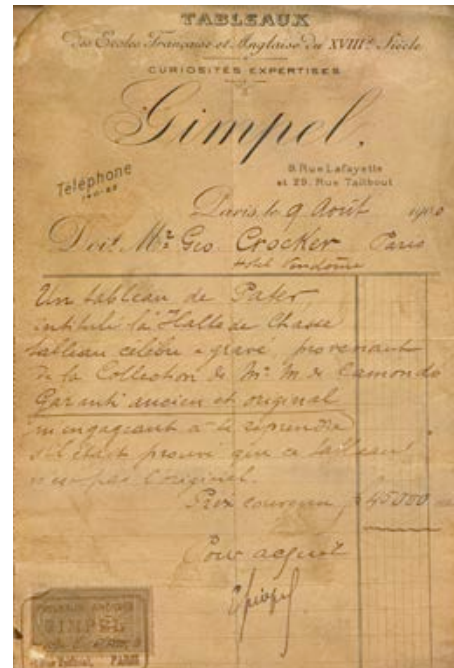 TABLEAUX
Des Ecoles Française et Anglaise du XVIIIe Siècle
CURIOSITÉS EXPERTISES
Gimpel,
Téléphone
9 Rue Lafayette
et 29, Rue Taitbout
Paris, le 9 Août 1900
Doit Mr Geo Crocker Paris
Hotel Vendome
Un tableau de Pater
intitulé la Halte de Chasse
tableau célèbre gravé, provenant
de la Collection de Mr M de Camondo
Garanti ancien et original
m'engageant à le reprendre
s'il était prouvé que ce tableau
n'est pas l'original.
Prix convenu 45000
Pour acquit
Gimpel
GIMPEL
PARIS